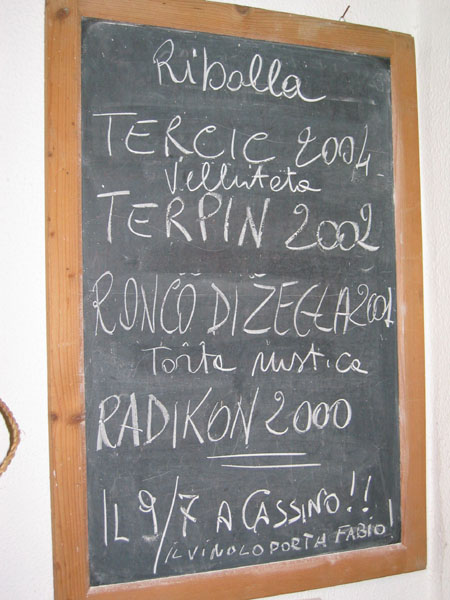 Ribolla
TERCIC 2004
Vellutata
TERPIN 2002
RONCÖ DI ŽEGLA 2001
Torta rustica
RADIKON 2000
IL 9/7 A CASSINO!!
IL VINO LO PORTA FABIO!